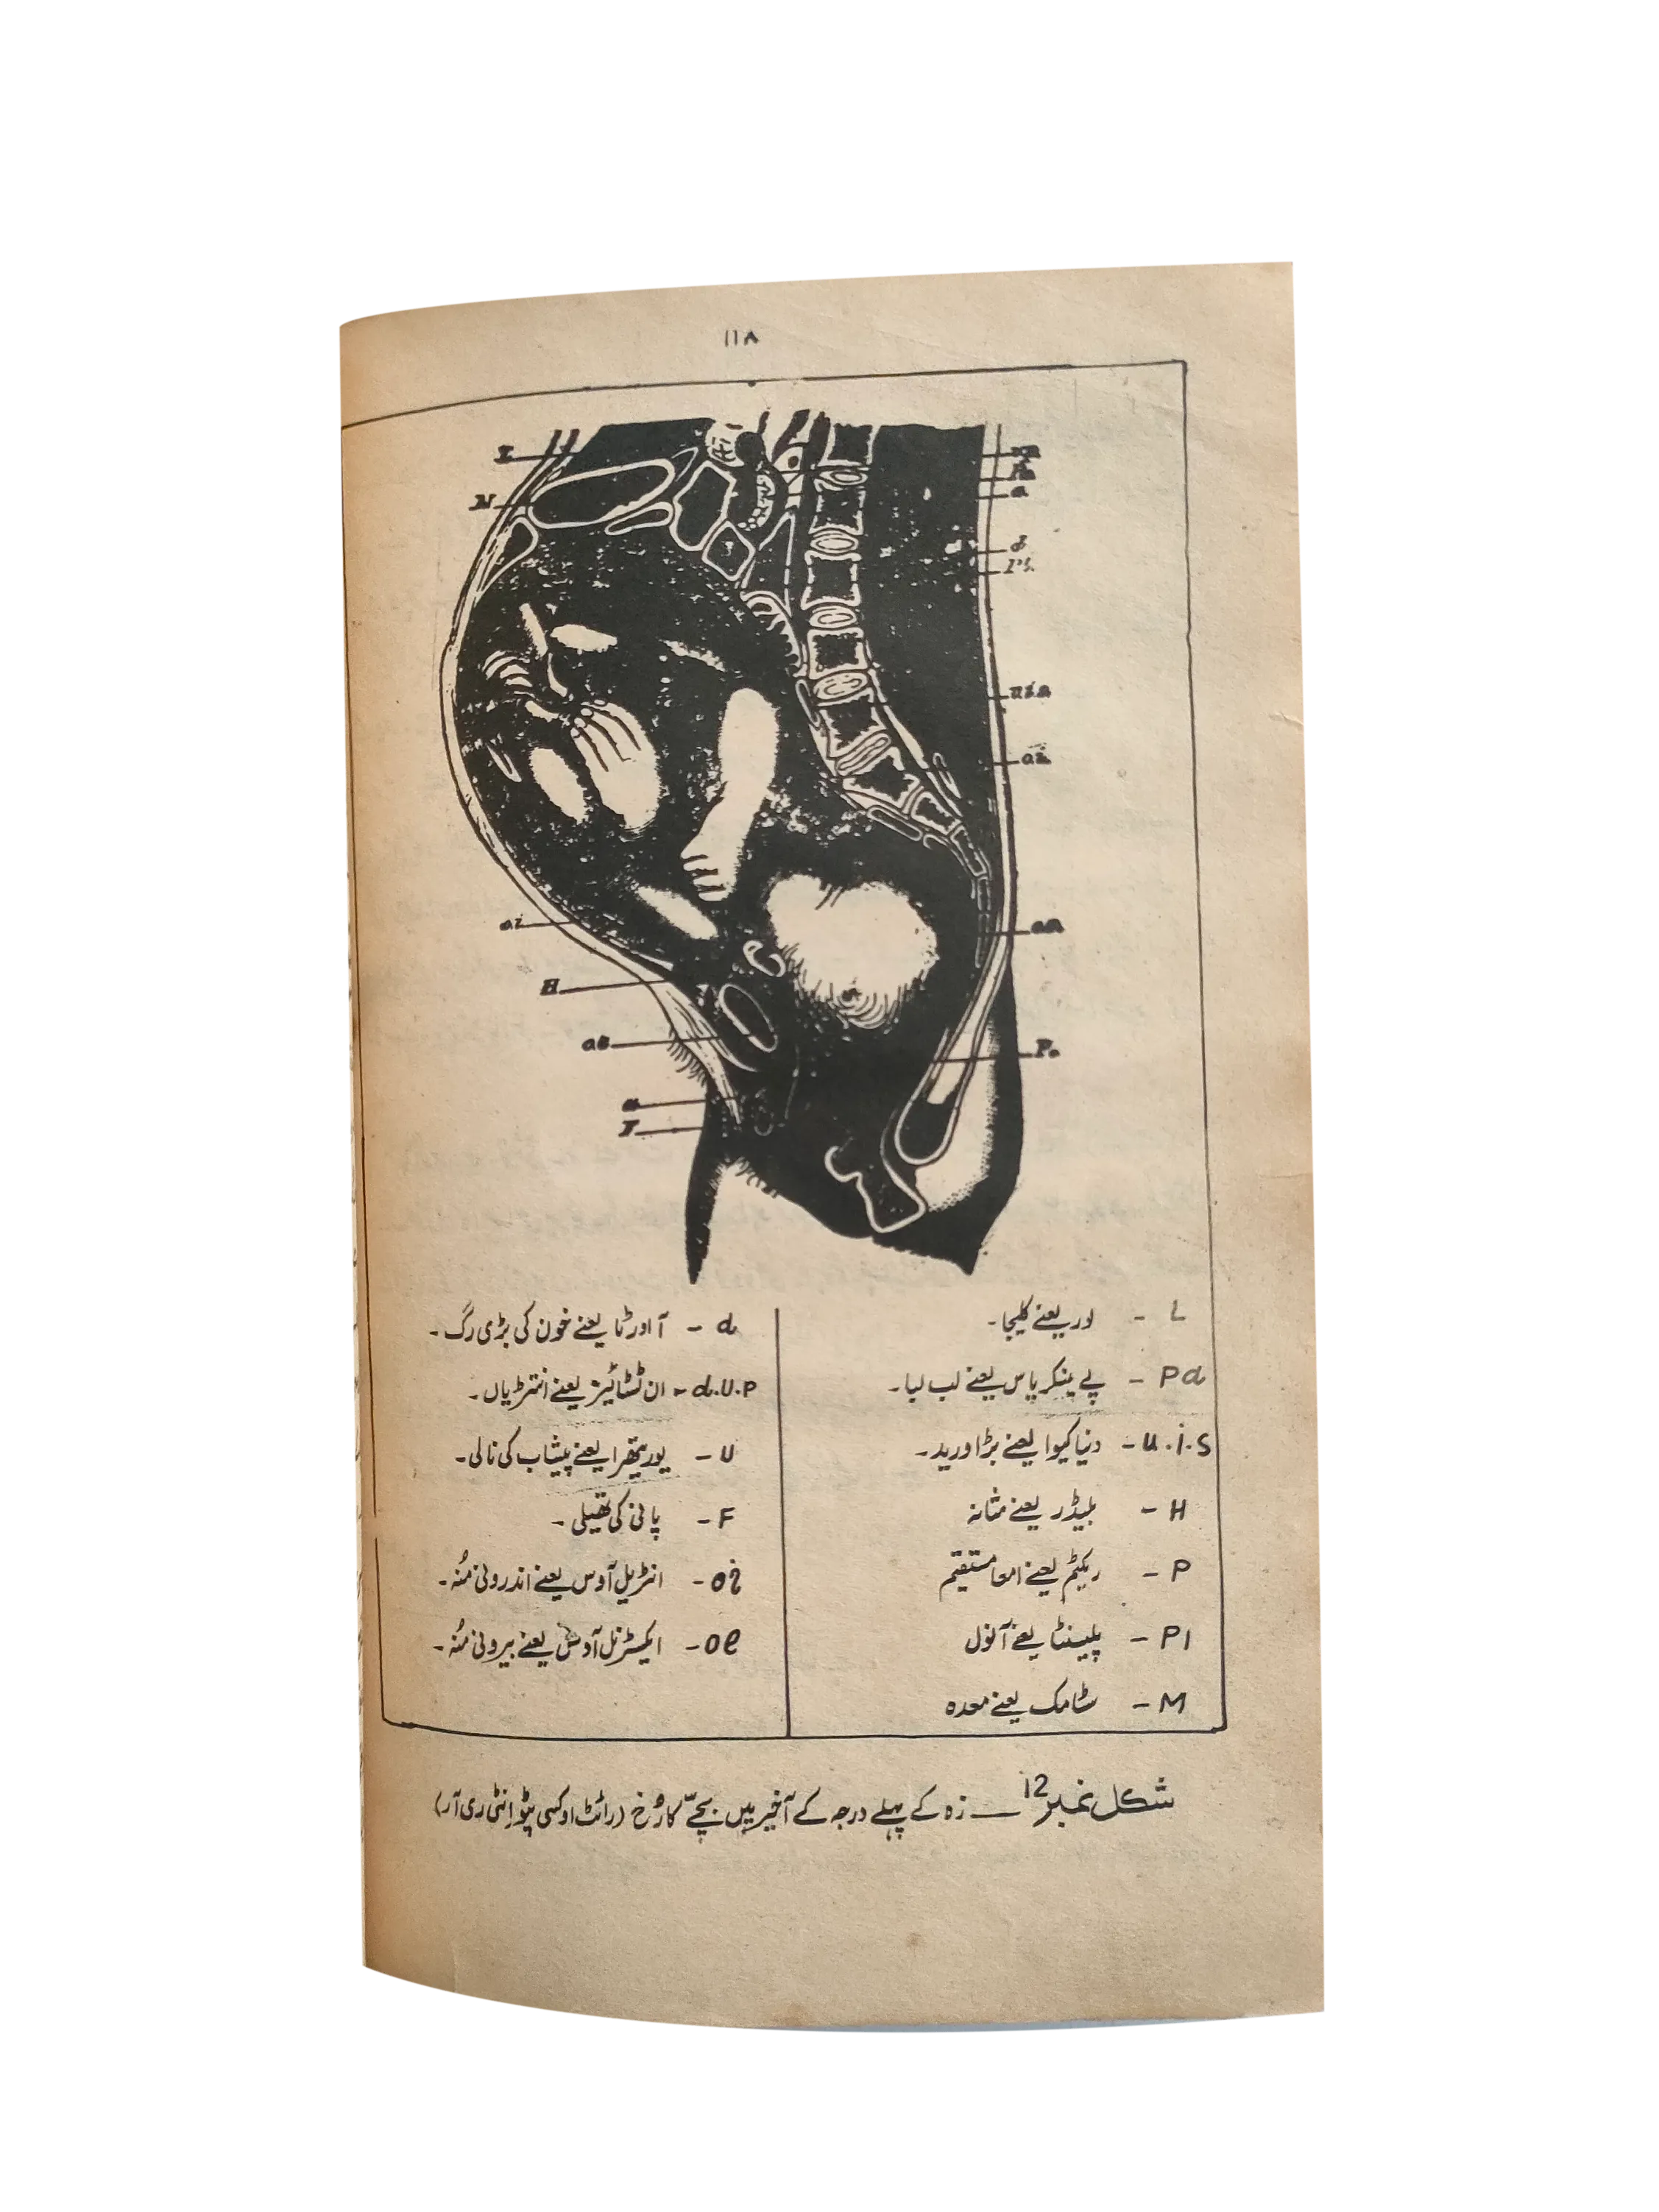 ۱۱۸
L
M
d
oi
H
U
F
P.
L - لور یعنے کلیجا۔
Pd - پے ینکریاس یعنے لب لبا۔
u.i.s - دنیا کیوا یعنے بڑا ورید۔
H - بلیڈر یعنے مثانہ
P - ریکٹم یعنے امعا مستقیم
P1 - پلیسنٹا یعنے آنول
M - سٹامک یعنے معدہ
d - آاورٹا یعنے خون کی بڑی رگ۔
d.U.P - ان ٹسٹائیز یعنے انتڑیاں۔
U - یوریتھرا یعنے پیشاب کی نالی۔
F - پانی کی تھیلی۔
oi - انٹریل آوس یعنے اندرونی مُنہ۔
oe - ایکسٹرنل آوس یعنے بیرونی مُنہ۔
شکل نمبر 12 — زہ کے پہلے درجہ کے آخیر میں بچّے کا رُخ (رائٹ اوکسی پٹو اِنٹی ری آر)